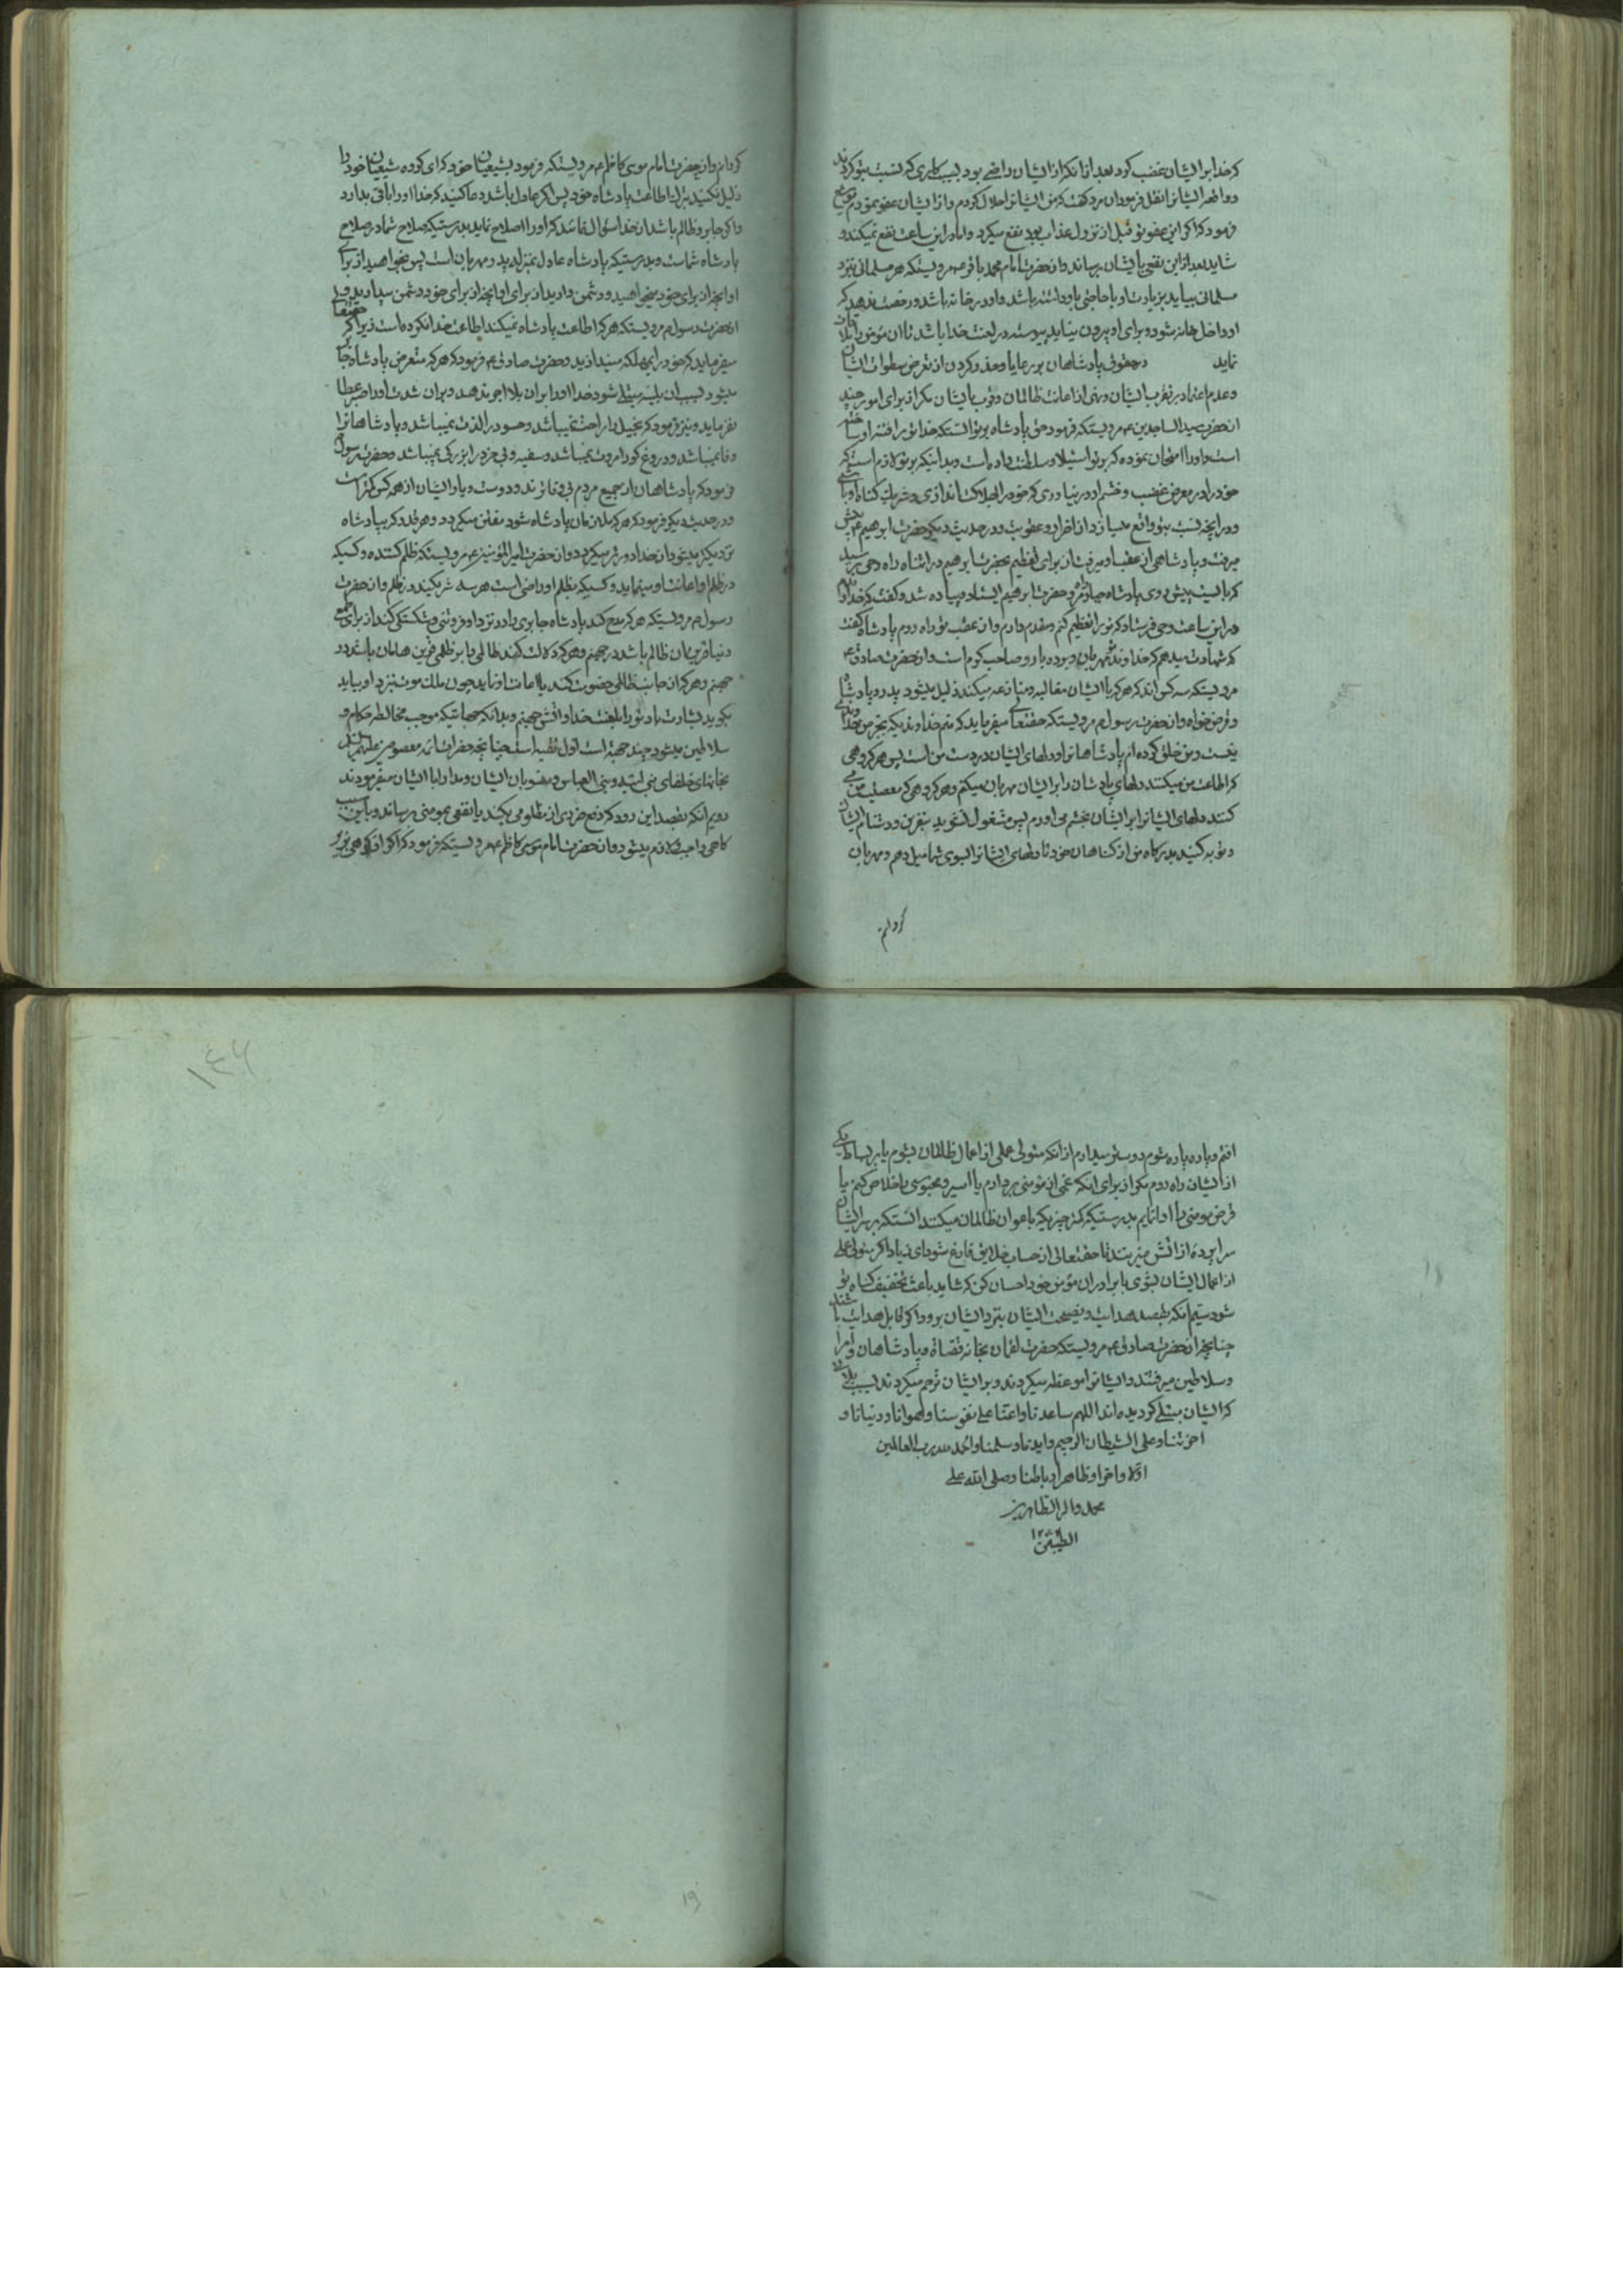 که خدا بر ایشان غضب کرد بعد از آنکه از ایشان راضی بود بسبب کاری که نسبت بتو کردند
و واقعه ایشانرا نقل فرمود ان مرد گفت که من ایشانرا حلال کردم و از ایشان عفو نمودم
فرمود که اگر این عفو تو قبل از نزول عذاب بود نفع میکرد و اما در این ساعت نفع نمیکند و
شاید بعد از این نفعی بایشان برساند و از حضرت امام محمد باقر ع مرویستکه هر مسلمانی نزد
مسلمانی بیاید بزیارت او یا حاجتی باو داشته باشد و او در خانه باشد و رخصت ندهد که
او داخل خانه شود و برای او بیرون نیاید پیوسته در لعنت خدا باشد تا ان مؤمن را ملاقات
نماید در حقوق پادشاهان بر رعایا و حذر کردن از تعرض سطوات ایشان
و عدم اعتماد بر تقرب ایشان و نهی از اعانت ظالمان و قرب بایشان مگر از برای امور چند
از حضرت سید الساجدین ع مرویستکه فرمود حق پادشاه بر تو انستکه خدا تو را فتنه او ساخته
است و او را امتحان نموده که بر تو استیلا و سلطنت داده است و بدانیکه بر تو لازم استکه
خود را در معرض غضب و خشم او در نیاوری که خود را بهلاکت اندازی و شریک گناه او باشی
در انچه نسبت بتو واقع میسازد از اضرار و عقوبت و در حدیث دیگر حضرت ابراهیم ع پیش
میرفت و پادشاهی از عقب او میرفت از برای تعظیم حضرت ابرهیم در اثناء راه وحی رسید
که بایست پیش روی پادشاه جبار راه مرو حضرت ابرهیم ایستاد و پیاده شد و گفت که خداوندم
در این ساعت وحی فرستاد که تو را تعظیم کنم و مقدم دارم و از عقب تو راه روم پادشاه گفت
که شهادت میدهم که خداوند تو مهربان و بردبار و صاحب کرم است و از حضرت صادق ع
مرویستکه سه کس اند که هر که با ایشان مقابله و منازعه میکند ذلیل میشود پدر و پادشاه
و قرض خواه و از حضرت رسول ص مرویستکه حقتعالی میفرماید که منم خداوندیکه بجز من خداوندی
نیست و من خلق کرده ام پادشاهانرا و دلهای ایشان در دست من است پس هر گروهی
که اطاعت من میکنند دلهای پادشاهان را بر ایشان مهربان میکنم و هر گروهی که معصیت من می
کنند دلهای ایشانرا بر ایشان بخشم می اورم پس مشغول نشوید بنفرین و دشنام ایشان
و توبه کنید بدرگاه من از گناهان خود تا دلهای ایشانرا بسوی شما میل دهم و مهربان
گردانم
گردانم و از حضرت امام موسی کاظم ع مرویستکه فرمود بشیعیان خود که ای گروه شیعیان خود را
ذلیل نکنید بترک اطاعت پادشاه خود پس اگر عادل باشد دعا کنید که خدا او را باقی بدارد
و اگر جابر و ظالم باشد از خدا سؤال نمائید که او را اصلاح نماید بدرستیکه صلاح شما در صلاح
پادشاه شماست و بدرستیکه پادشاه عادل بمنزله پدر مهربان است پس بخواهید از برای
او انچه از برای خود میخواهید و دشمن دارید از برای او انچه از برای خود دشمن میدارید و از
انحضرت رسول ص مرویستکه هر که اطاعت پادشاه نمیکند اطاعت خدا نکرده است زیرا که حقتعالی
میفرماید که خود را بمهلکه میندازید و حضرت صادق ع فرمود که هر که متعرض پادشاه جابر
میشود بسبب ان ببلیه مبتلی شود خدا او را بر ان بلا اجر ندهد و بر ان شدت او را صبر عطا
نفرماید و نیز فرمود که بخیل را راحت نمیباشد و حسود را لذت نمیباشد و پادشاهانرا
وفا نمیباشد و دروغ گو را مروت نمیباشد و سفیه و بی خرد را بزرگی نمیباشد و حضرت رسول
فرمود که پادشاهان از جمیع مردم بی وفاترند و دوست و یار ایشان از همه کس کمتر است
و در حدیث دیگر فرمود که هر که ملازمان پادشاه شود مفتن میگردد و هر قدر که بپادشاه
نزدیکتر میشود از خدا دورتر میگردد و از حضرت امیر المؤمنین ع مرویستکه ظلم کننده و کسیکه
در ظلم او اعانت او مینماید و کسیکه بظلم او راضی است هر سه شریکند در ظلم و از حضرت
رسول ص مرویستکه هر که مدح کند پادشاه جابری را و در نزد او فروتنی و شکستگی کند از برای طمع
دنیا قرین ان ظالم باشد در جهنم و هر که دلالت کند ظالمی را بر ظلمی قرین هامان باشد در
جهنم و هر که از جانب ظالمی خصومت کند یا اعانت او نماید چون ملک موت بنزد او بیاید
بگوید بشارت باد تو را بلعنت خدا و اتش جهنم و بدانکه جهاتیکه موجب مخالطه حکام و
سلاطین میشود چند جهة است اول تقیه است چنانچه حضرات ائمه معصومین علیهم السلام
بخانهای خلفای بنی امیه و بنی العباس و منسوبان ایشان و مدارا با ایشان میفرمودند
دویم انکه بقصد این رود که دفع ضرری از مظلومی بکند یا نفعی بمؤمنی برساند و باین سبب
گاهی واجب و لازم میشود و از حضرت امام موسی کاظم ع مرویستکه فرمود که اگر از کوهی بزیر
افتم و پاره پاره شوم دوستر میدارم از انکه متولی عملی از اعمال ظالمان بشوم یا بر بساط یکی
از ایشان راه روم مگر از برای انکه غمی از مؤمنی بردارم یا اسیر و محبوسی را خلاص کنم یا
قرض مؤمنی را ادا نمایم بدرستیکه کمتر چیزیکه با اعوان ظالمان میکنند انستکه بر سر ایشان
سراپرده از اتش میزنند تا حقتعالی از حساب خلایق فارغ شود ای زیاد اگر متولی عملی
از اعمال ایشان بشوی با برادران مؤمن خود احسان کن که شاید باعث تخفیف گناه تو
شود سیم انکه بقصد هدایت و نصیحت ایشان بنزد ایشان برود اگر قابل هدایت باشند
چنانچه از حضرت صادق ع مرویستکه حضرت لقمان بخانه قضاة و پادشاهان و امرا
و سلاطین میرفتند و ایشانرا موعظه میکردند و بر ایشان ترحم میکردند بسبب بلائی
که ایشان مبتلی گردیده اند اللهم ساعدنا و اعنا علی نفوسنا و اهوائنا و دنیانا و
اخرتنا و علی الشیطان الرجیم و ایدنا و سلمنا و الحمد لله رب العالمین
اولا و اخرا و ظاهرا و باطنا و صلی الله علی
محمد و اله الطاهرین
الطیبین
۱۴۶
۱۹